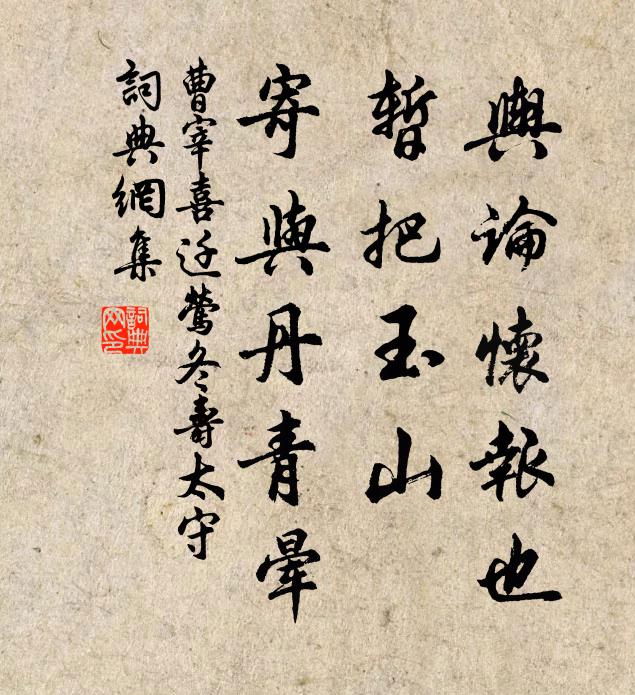 輿論懷報也
暫把玉山
寄與丹青暈
曹宰喜迁鶯冬壽太守
詞典網集
詞典網印